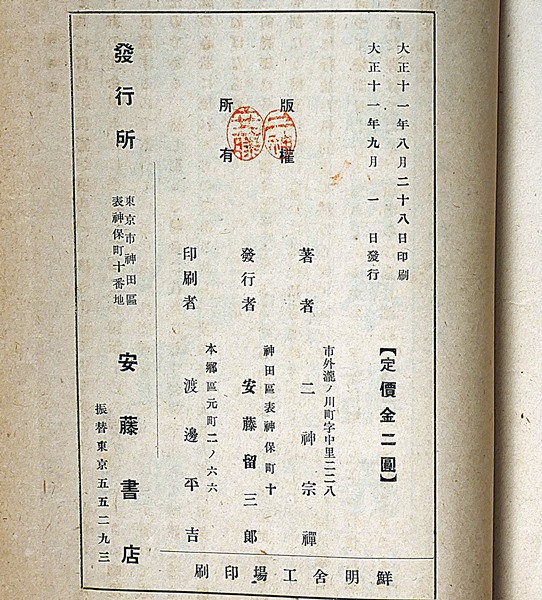 大正十一年八月二十八日印刷
大正十一年九月一日發行
【定價金二圓】
版權
所有
二神
安藤
著者
市外瀧ノ川町字中里二二八
二神宗禪
發行者
神田區表神保町十
安藤留三郎
印刷者
本鄉區元町二ノ六六
渡邊平吉
發行所
東京市神田區
表神保町十番地
安藤書店
振替東京五五二九三
鮮明舍工場印刷